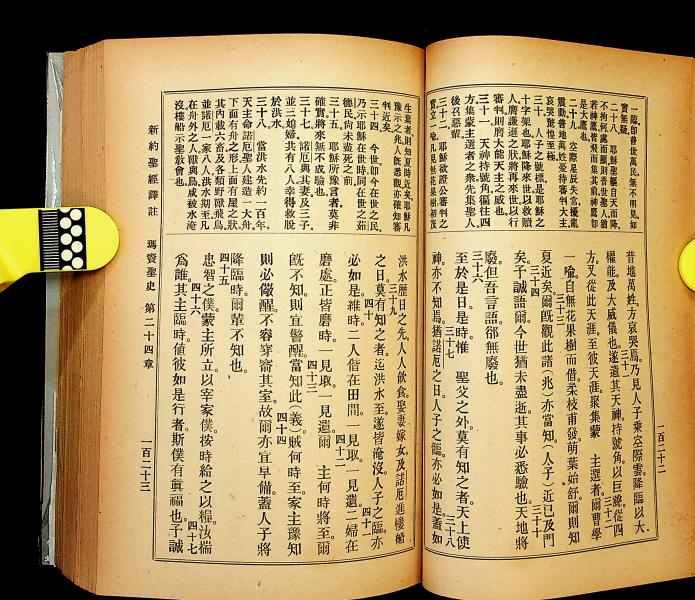 一臨、卽普世萬民無不明見知
實無疑。
二十八 耶穌聖軀自天而降、
不拘何處顯現、則普世聖人猶
若神鷹皆飛而集其前、神鷹卽
是大鷹也。
二十九 空際星辰失宮、擾亂
震動、普地萬姓愛待審判大主、
哀哭驚惶至極。
三十 人子之號、標是耶穌之
十字架也、耶穌降來世以救贖
人膺謙遜之狀、將再來世以行
審判、則膺大能天主之威也。
三十一 天神持號角徧往四
方、集蒙主選者之衆、先集聖人
後召惡輩
三十二 耶穌欲證公審判之
實、立一喻、凡見無花果樹、初茂
昔地萬姓、方哀哭焉。乃見人子乘空際雲降臨以大
三十一
權能及大威儀也。遂遣其天神、持號角、以巨聲從四
三十二
方、又從此天涯、至彼天涯、聚集蒙 主選者。爾曹學
三十三
一喻。自無花果樹而借、柔枝甫發萌葉始舒、爾則知
夏近矣。爾旣觀此諸(兆)亦當知(人子)近已及門
三十四
三十五
矣。予誠語爾、今世猶未盡逝、其事必悉驗也。天地將
廢、但吾言語郤無廢也。
三十六
至於是日是時、惟 聖父之外、莫有知之者、天上使
三十七
三十八
神、亦不知焉。猶諾厄之日、人子之臨、亦必如是。蓋如
一百二十二
生葉者、則知夏時近矣、耶穌凡
豫示之兆、人旣悉觀、亦確知審
判近矣、
三十四 今世、卽今在世之民、
乃示耶穌在世時、同在世之茹
德民尚未盡死之前、
三十五 耶穌所豫言者、莫非
確實、將來無不成驗也。
三十七 諾厄與其妻及三子、
並三媳婦共有八人、幸得救脫
於洪水、
三十八 當洪水先約一百年、
天主命諾厄聖人建造一大舟、
下面有舟之形、上面有屋之狀、
其內載六畜及各類野獸飛鳥、
並諾厄一家八人、洪水期至凡
在舟外之人獸與鳥咸被水淹
沒、樓船示聖敎會也、
洪水歷日之先、人人飲食、娶妻嫁女、及諾厄進樓船
三十九
之日、莫有知之者、迄洪水至、遂皆淹沒。人子之臨、亦
四十
必如是。維時、二人偕在田間、一見取、一見遺。二婦在
四十二
磨處正皆磨時、一見取、一見遺、爾 主何時將至、爾
四十三
旣不知、則宜警醒。當知此(義)賊何時至、家主豫知
四十四
則必儆醒、不容穿竊其室。故爾亦宜早備、蓋人子將
降臨時、爾輩不知也。
四十五
忠智之僕、蒙主所立、以宰家僕、按時給之以糧、汝揣
四十六
爲誰。其主臨時、値彼如是行者、斯僕有眞福也。予誠
四十七
新約聖經譯註 瑪竇聖史 第二十四章 一百二十三